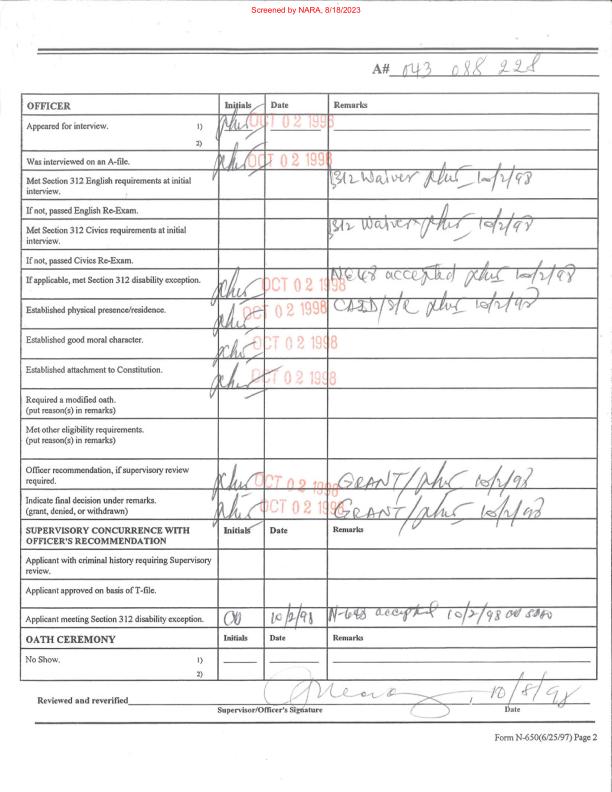 Screened by NARA, 8/18/2023
A# 043 088 228
OFFICER Initials Date Remarks
Appeared for interview. 1) OCT 02 1998
2)
Was interviewed on an A-file. OCT 02 1998
Met Section 312 English requirements at initial 312 Waiver 10/2/98
interview.
If not, passed English Re-Exam.
Met Section 312 Civics requirements at initial 312 Waiver 10/2/98
interview.
If not, passed Civics Re-Exam.
If applicable, met Section 312 disability exception. OCT 02 1998 N648 accepted 10/2/98
Established physical presence/residence. OCT 02 1998 10/2/98
Established good moral character. OCT 02 1998
Established attachment to Constitution. OCT 02 1998
Required a modified oath.
(put reason(s) in remarks)
Met other eligibility requirements.
(put reason(s) in remarks)
Officer recommendation, if supervisory review OCT 02 1998 GRANT/ 10/2/98
required.
Indicate final decision under remarks. OCT 02 1998 GRANT/ 10/2/98
(grant, denied, or withdrawn)
SUPERVISORY CONCURRENCE WITH Initials Date Remarks
OFFICER'S RECOMMENDATION
Applicant with criminal history requiring Supervisory
review.
Applicant approved on basis of T-file.
Applicant meeting Section 312 disability exception. 10/2/98 N-648 accepted 10/2/98
OATH CEREMONY Initials Date Remarks
No Show. 1)
2)
Reviewed and reverified , 10/8/98
Supervisor/Officer's Signature Date
Form N-650(6/25/97) Page 2